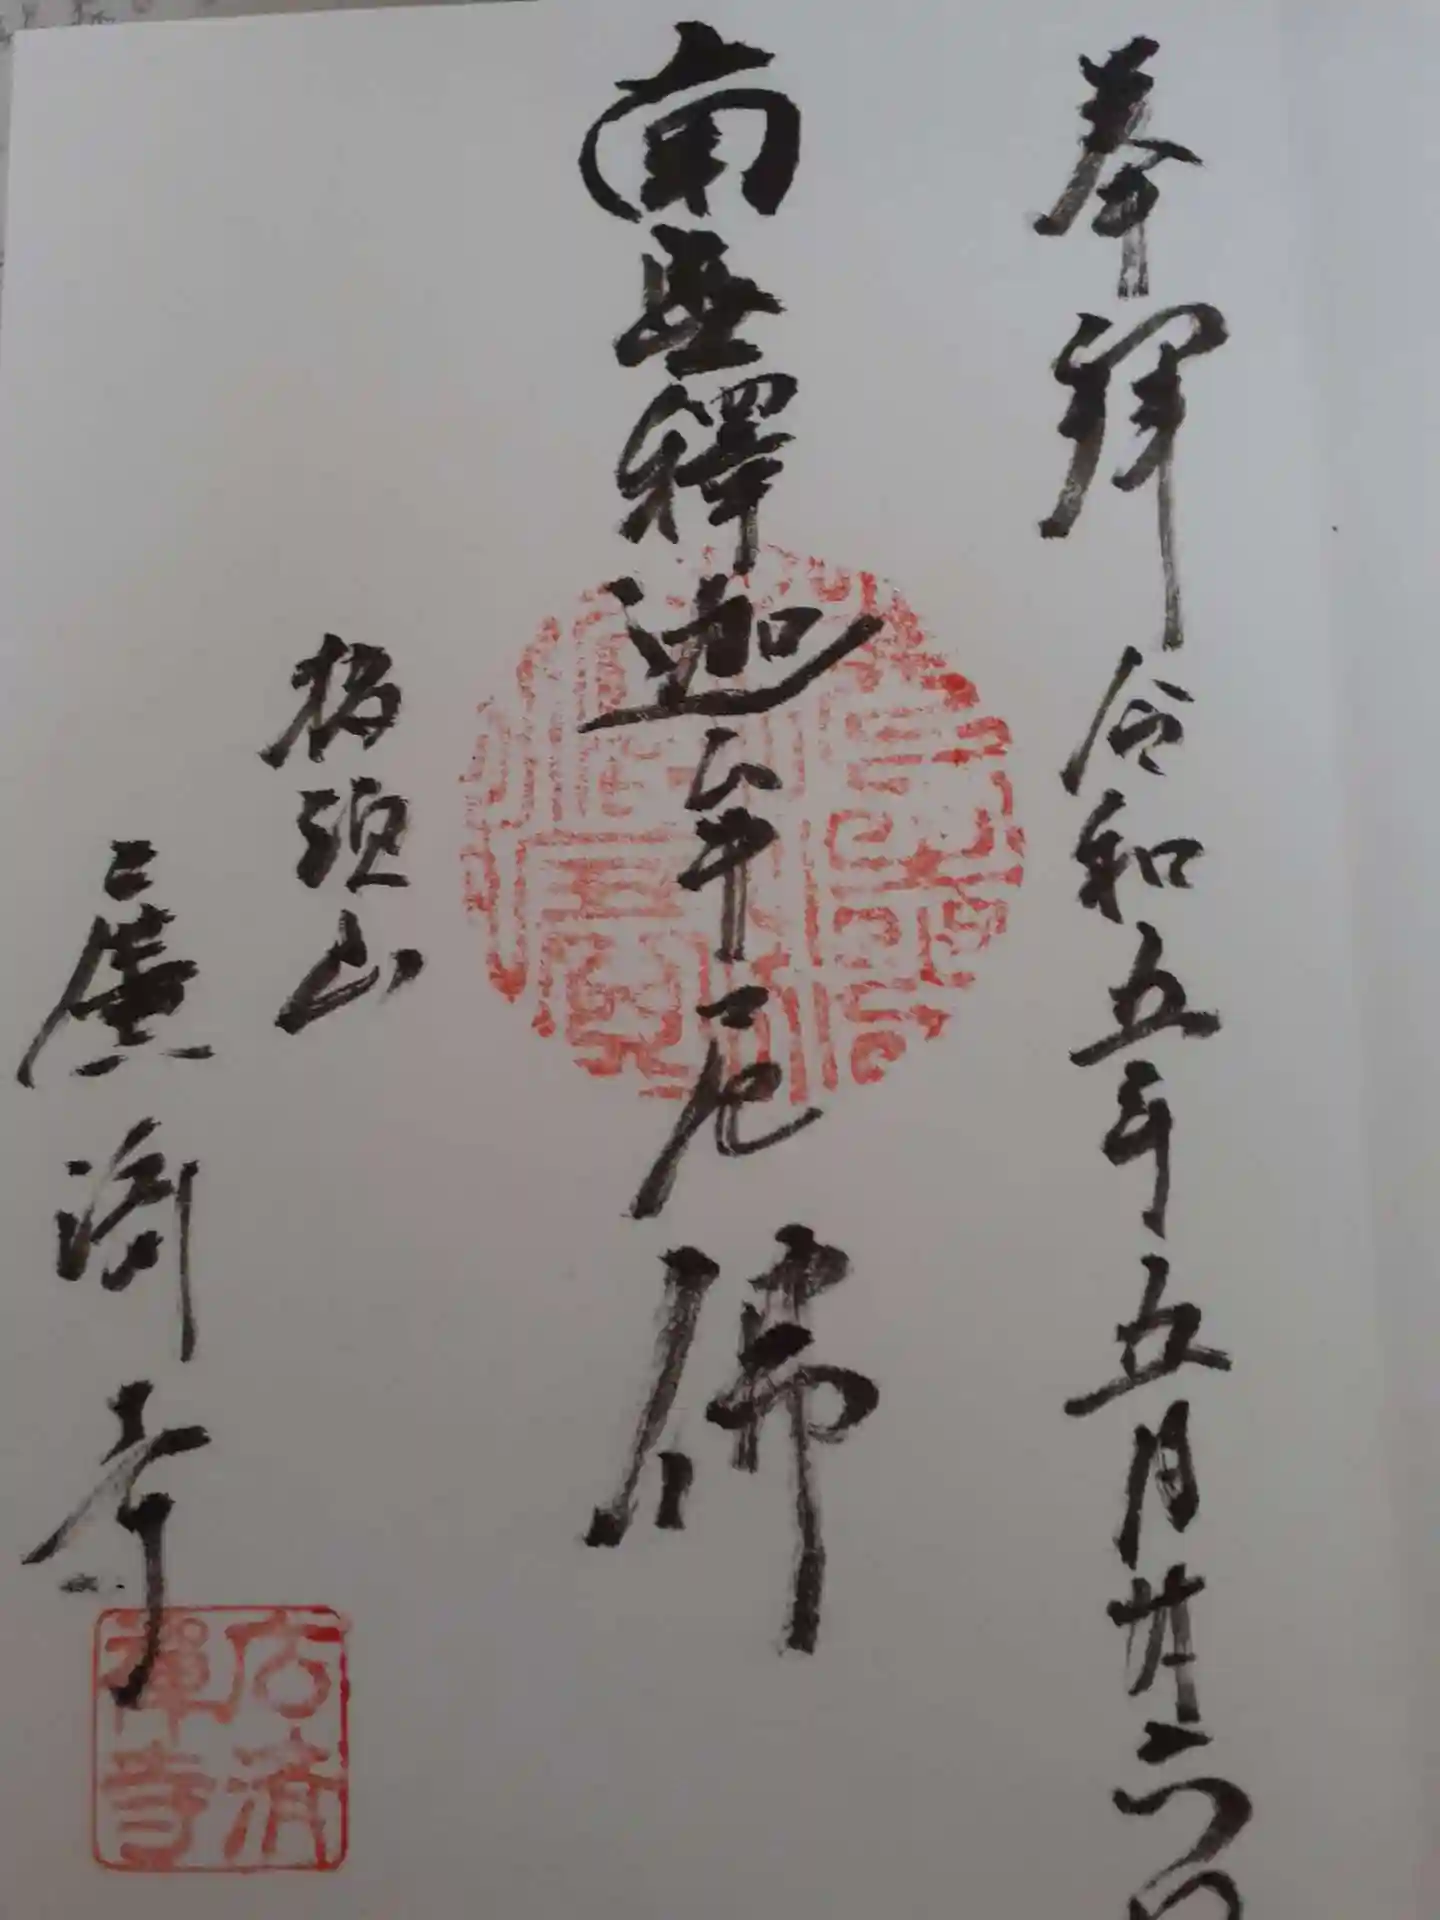 奉拝 令和五年五月廿六日
南無釋迦牟尼佛
板頭山
廣濟寺
広済禅寺